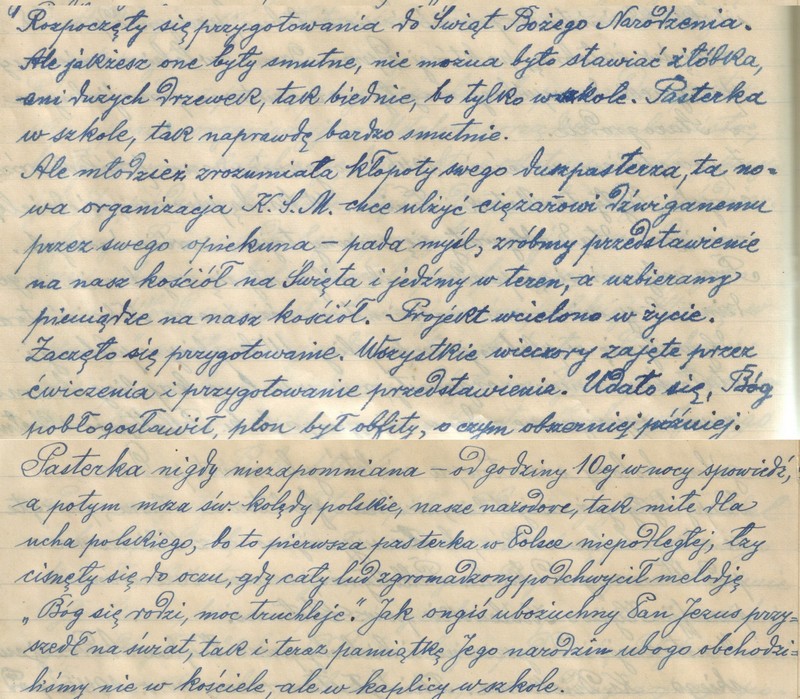 "Rozpoczęły się przygotowania do Świąt Bożego Narodzenia.
Ale jakżesz one były smutne, nie można było stawiać żłóbka,
ani dużych drzewek, tak biednie, bo tylko w szkole. Pasterka
w szkole, tak naprawdę bardzo smutnie.
Ale młodzież zrozumiała kłopoty swego duszpasterza, ta no-
wa organizacja K.S.M. chce ulżyć ciężarowi dźwiganemu
przez swego opiekuna – pada myśl, zróbmy przedstawienie
na nasz kościół na Święta i jedźmy w teren, a uzbieramy
pieniądze na nasz kościół. Projekt wcielono w życie.
Zaczęło się przygotowanie. Wszystkie wieczory zajęte przez
ćwiczenia i przygotowanie przedstawienia. Udało się, Bóg
pobłogosławił, plon był obfity, o czym obszerniej później.
Pasterka nigdy niezapomniana – od godziny 10ej w nocy spowiedź,
a potym msza św. kolędy polskie, nasze narodowe, tak miłe dla
ucha polskiego, bo to pierwsza pasterka w Polsce niepodległej, łzy
cisnęły się do oczu, gdy cały lud zgromadzony podchwycił melodję
„Bóg się rodzi, moc truchleje." Jak ongiś ubożuchny Pan Jezus przy-
szedł na świat, tak i teraz pamiątkę Jego narodzin ubogo obchodzi-
liśmy nie w kościele, ale w kaplicy w szkole.